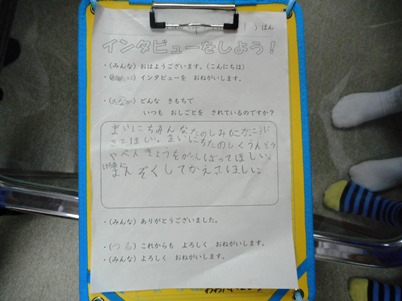 ）ばん
インタビューをしよう！
・(みんな) おはようございます。(こんにちは)
インタビューを おねがいします。
どんな きもちで
いつも おしごとを されているのですか？
まいにちみんなたのしみにがっこうに
きてほしい。まいにちたのしくうんどう
やべんきょうをがんばってほしい。
まんぞくしてかえってほしい
・(みんな) ありがとうございました。
これからも よろしく おねがいします。
・(みんな) よろしく おねがいします。